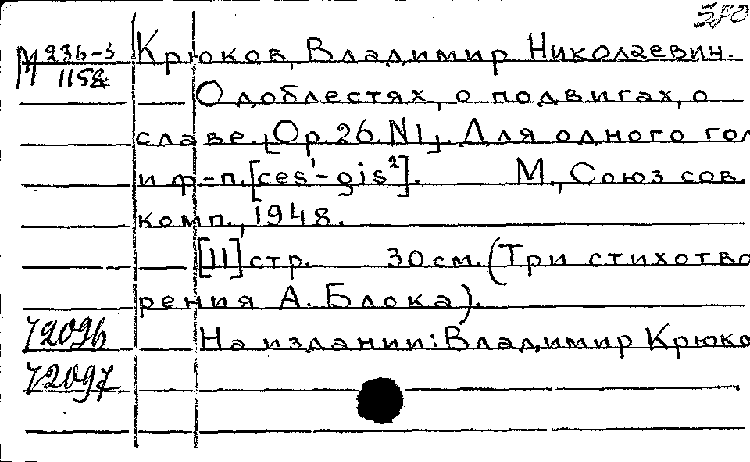 580
М 236-3 Крюков, Владимир Николаевич.
1152
О доблестях, о подвигах, о
славе. [Ор. 26. N1]. Для одного гол
и ф-п. [ces¹-gis²]. М., Союз сов.
комп., 1948.
[11] стр. 30 см. (Три стихотво
рения А. Блока).
72096 На издании: Владимир Крюко
72097